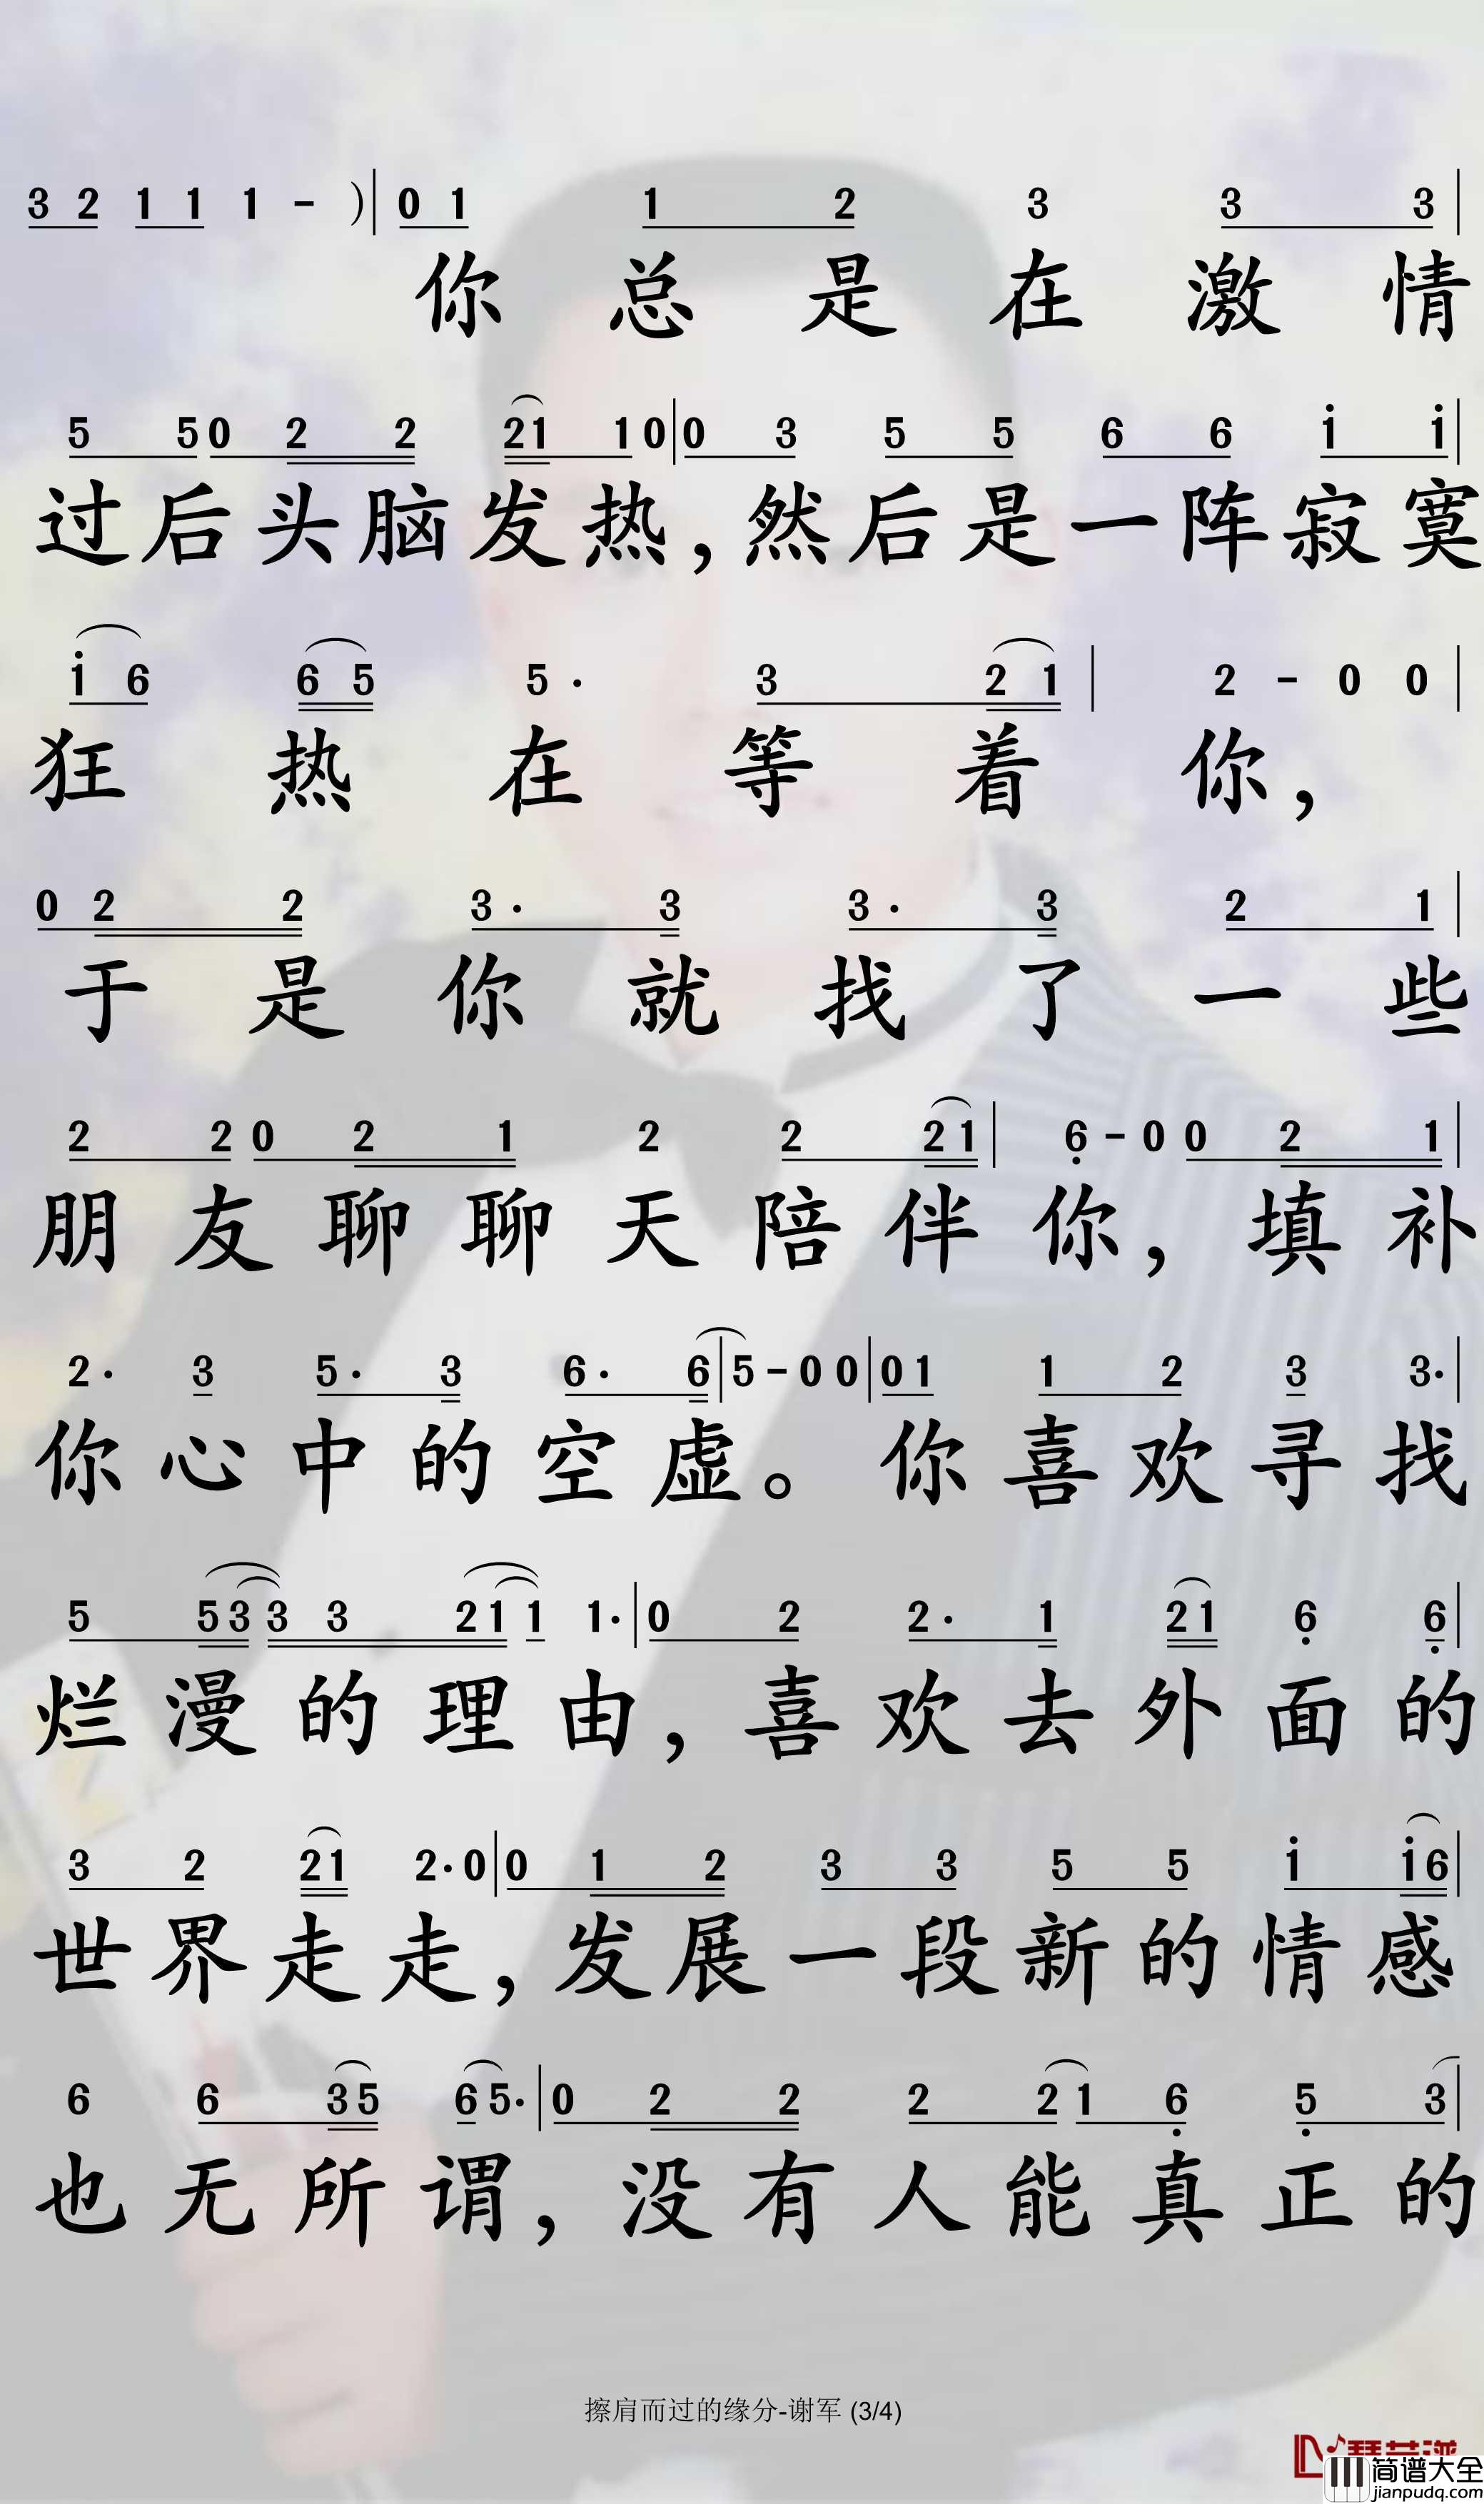 3 2 1 1 1 - ) | 0 1 1 2 3 3 3 |
你 总 是 在 激 情
5 5 0 2 2 21 1 0 | 0 3 5 5 6 6 i i |
过 后 头 脑 发 热 , 然 后 是 一 阵 寂 寞
i 6 6 5 5 · 3 2 1 | 2 - 0 0 |
狂 热 在 等 着 你 ,
0 2 2 3 · 3 3 · 3 2 1 |
于 是 你 就 找 了 一 些
2 2 0 2 1 2 2 2 1 | 6 - 0 0 2 1 |
朋 友 聊 聊 天 陪 伴 你 , 填 补
2 · 3 5 · 3 6 · 6 | 5 - 0 0 | 0 1 1 2 3 3 · |
你 心 中 的 空 虚 。 你 喜 欢 寻 找
5 5 3 3 3 2 1 1 1 · | 0 2 2 · 1 2 1 6 6 |
烂 漫 的 理 由 , 喜 欢 去 外 面 的
3 2 2 1 2 · 0 | 0 1 2 3 3 5 5 i i 6 |
世 界 走 走 , 发 展 一 段 新 的 情 感
6 6 3 5 6 5 · | 0 2 2 2 2 1 6 5 3 |
也 无 所 谓 , 没 有 人 能 真 正 的
擦肩而过的缘分-谢军 (3/4)
简谱大全
jianpudq.com